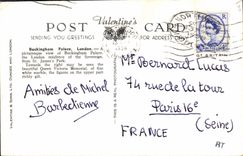 Valentine's
POST CARD
SENDING YOU GREETINGS
Buckingham Palace, London.
picturesque view of Buckingham Palace, the
London residence of the Sovereign,
from St. James's Park.
Towards the right may be seen the
beautiful Queen Victoria Memorial, of fine
white marble, the figures on the upper part
being gilt.
Amitiés de Michel
Barbedienne
Mr Bernard Lucas
74 rue de la tour
Paris 16e
(Seine)
FRANCE
VALENTINE & SONS LTD. DUNDEE AND LONDON